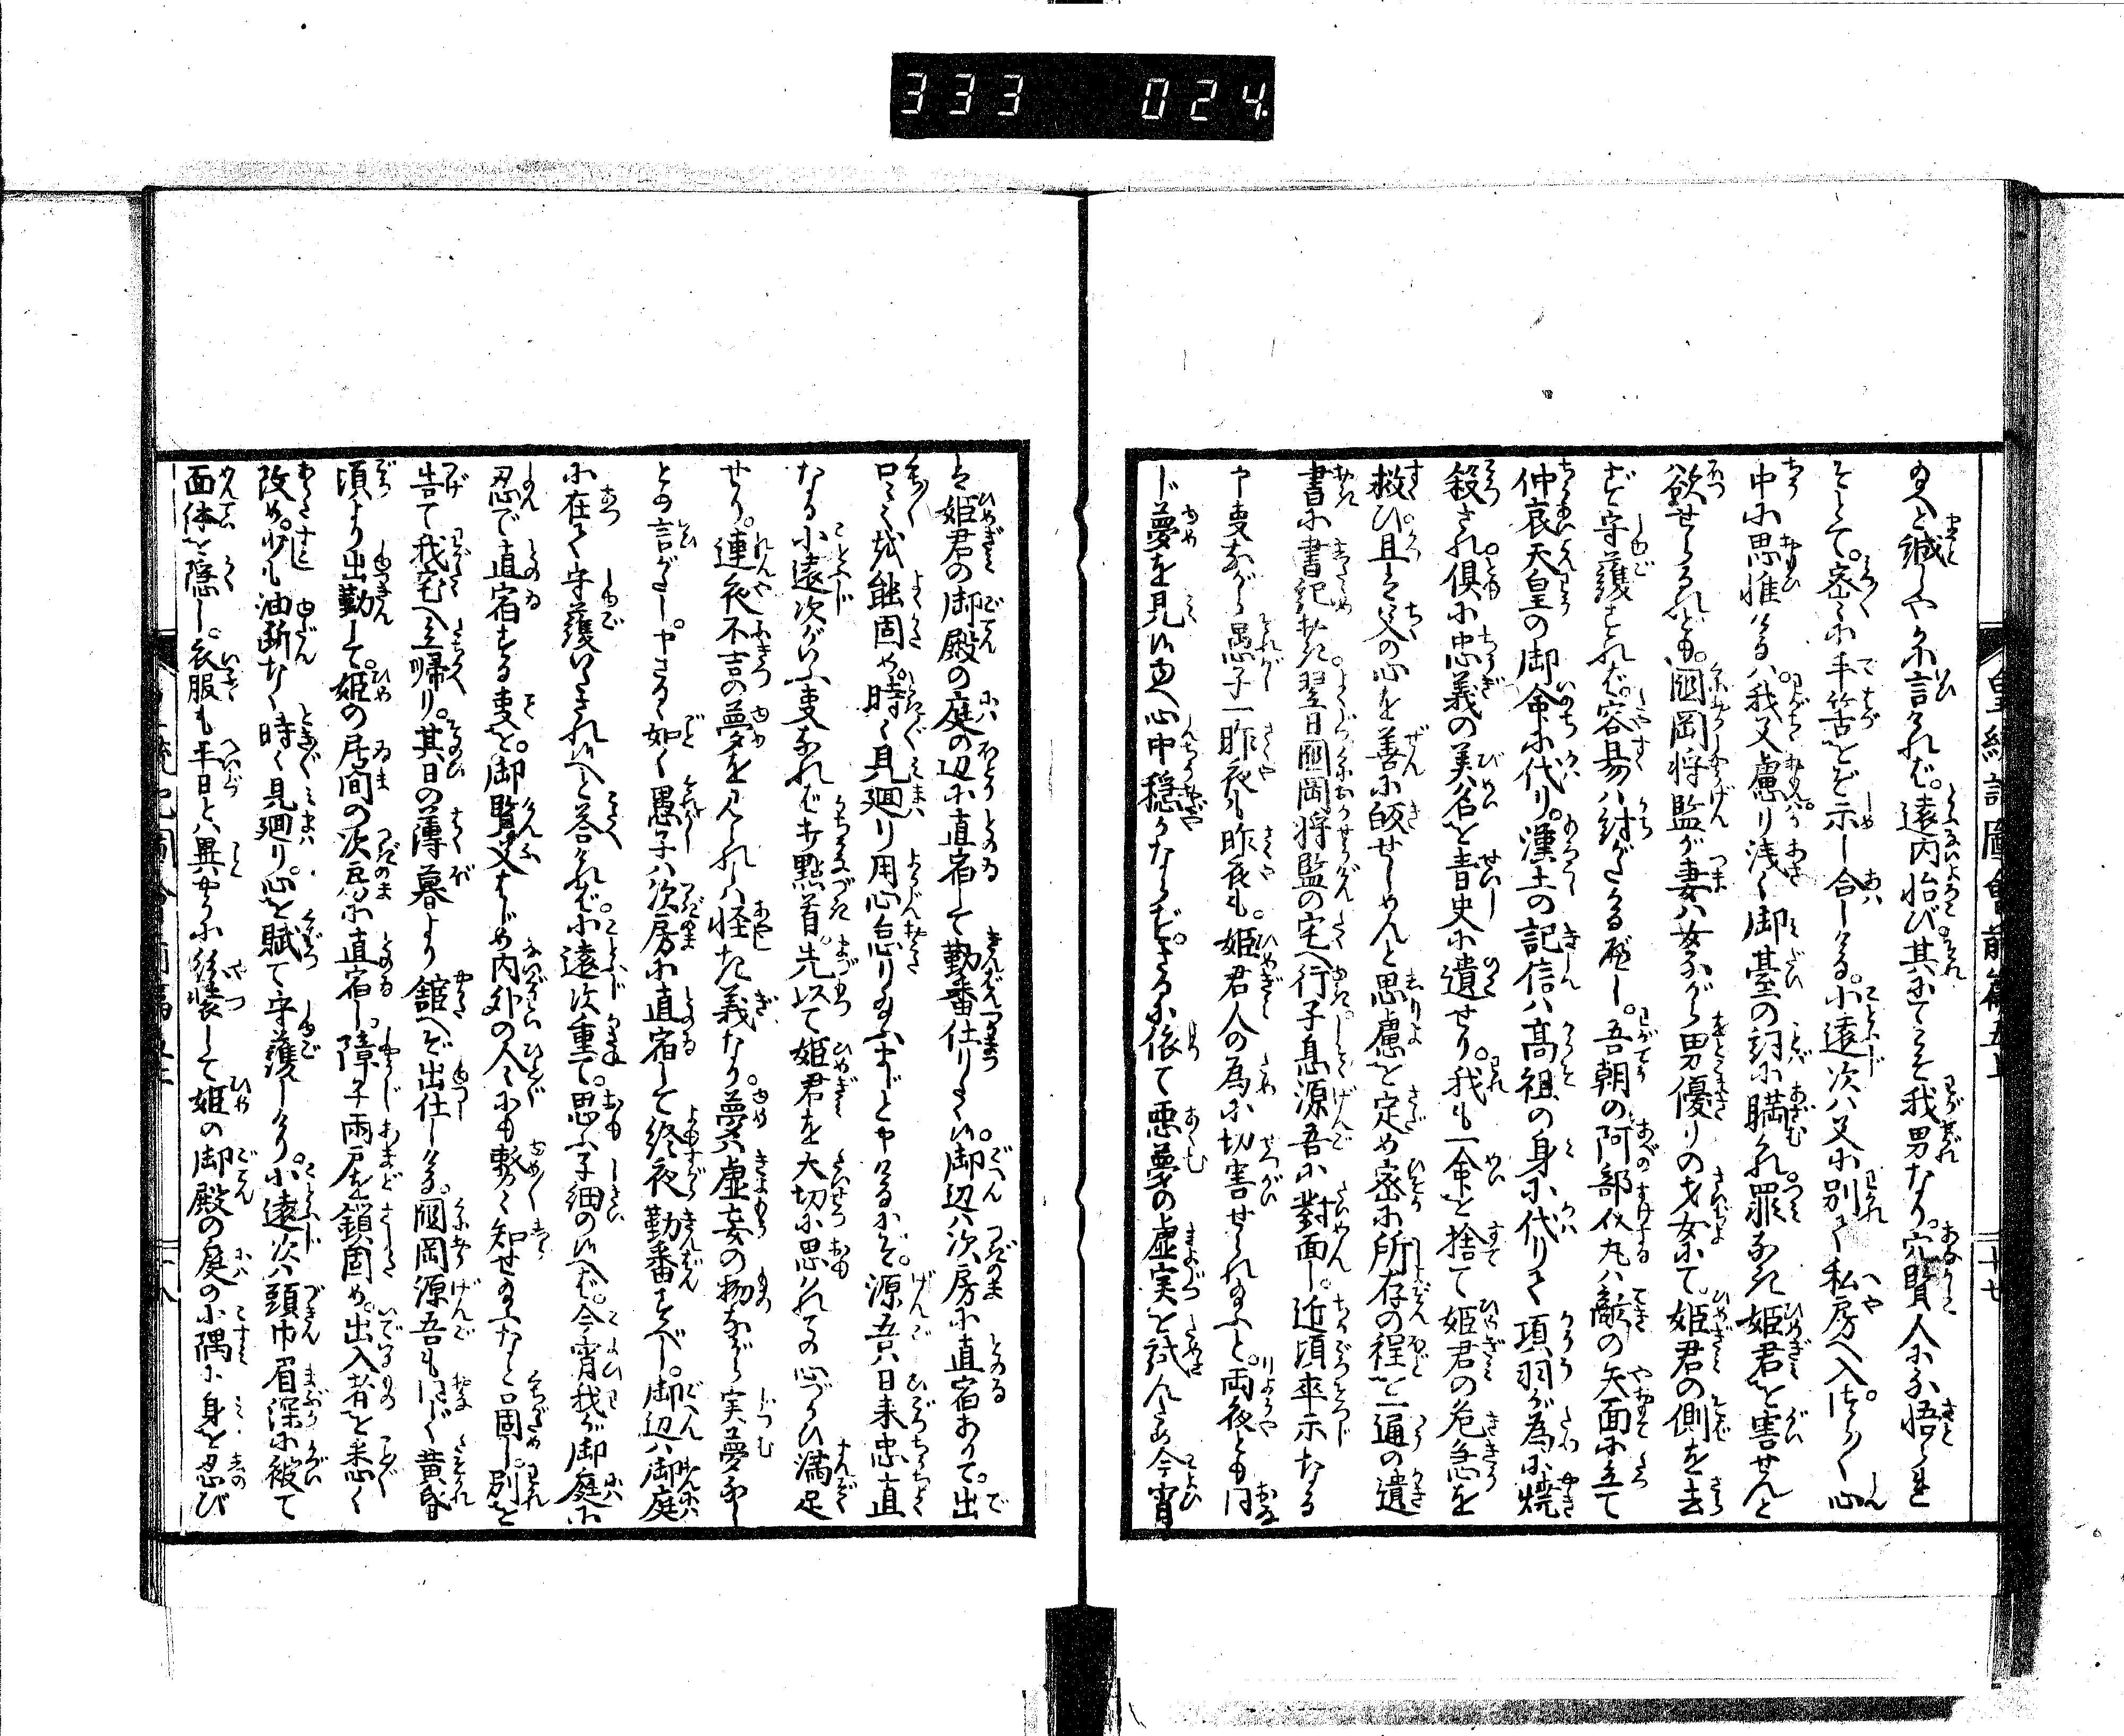 333 024
皇統記圖會前篇五ノ上
二十七
のへと誠しやかに言ければ。遠内怡び其にてこそ我男なり。穴賢人にな悟られ
そとて。密々に手筈をぞ示し合しける。小遠次ハ又に別れて私房へ入。つら〳〵心
中に思惟けるハ。我父慮り浅く御臺の詞に瞞れ罪なき姫君を害せんと
欲せらるれとも。岡将監が妻ハ女ながら男優りの才女にて。姫君の側を去
ず守護すれば。容易ハ討がたかるべし。吾朝の阿部仪丸ハ敵の矢面に立て
仲哀天皇の御命に代り。漢土の記信ハ高祖の身に代りて項羽が為に焼
殺され倶に忠義の美名を青史に遺せり。我も一命を捨て姫君の危急を
救ひ且ハ父の心を善に皈せしめんと思慮を定め密に所存の程を一通の遺
書に書紀おき翌日岡将監の宅へ行子息源吾に對面し。近頃率示なる
申事ながら愚子一昨夜も昨夜も。姫君人の為に切害せられ給ふと。両夜とも同
じ夢を見候ゆへ心中穏かならず。さるに依て悪夢の虚実を試んため今宵
ハ姫君の御殿の庭の辺に直宿して勤番仕りたく候。御辺ハ次房に直宿ありて。出
口々々能鎖固め。時々見廻り用心怠り給ふまじと申けるにぞ。源吾ハ日来忠直
なる小遠次がいふ事なれば打點首。先以て姫君を大切に思れての心づかひ満足
せり。連夜不吉の夢を見られしハ怪き義なり。夢ハ虚妄の物ながら実夢なし
との言がたし。申さるゝ如く愚子ハ次房に直宿して終夜勤番すべし。御辺ハ御庭
に在て守護いたされ候へと答ければ。小遠次重て。思ふ子細の候へば。今宵我が御庭に
忍で直宿する事を。御賢父はじめ内外の人々にも努々知せ給ふなと口固し。別を
告て我宅へ立帰り。其日の薄暮より舘へぞ出仕しける。岡源吾も同じく黄昏
頃より出勤して。姫の居間の次房に直宿し。障子雨戸を鎖固め。出入者を悉く
改め。少しも油断なく時々見廻り。心を賦て守護しけり。小遠次ハ頭巾眉深に被て
面体を隠し。衣服も平日とハ異やうに〓装して姫の御殿の庭の小隅に身を忍び